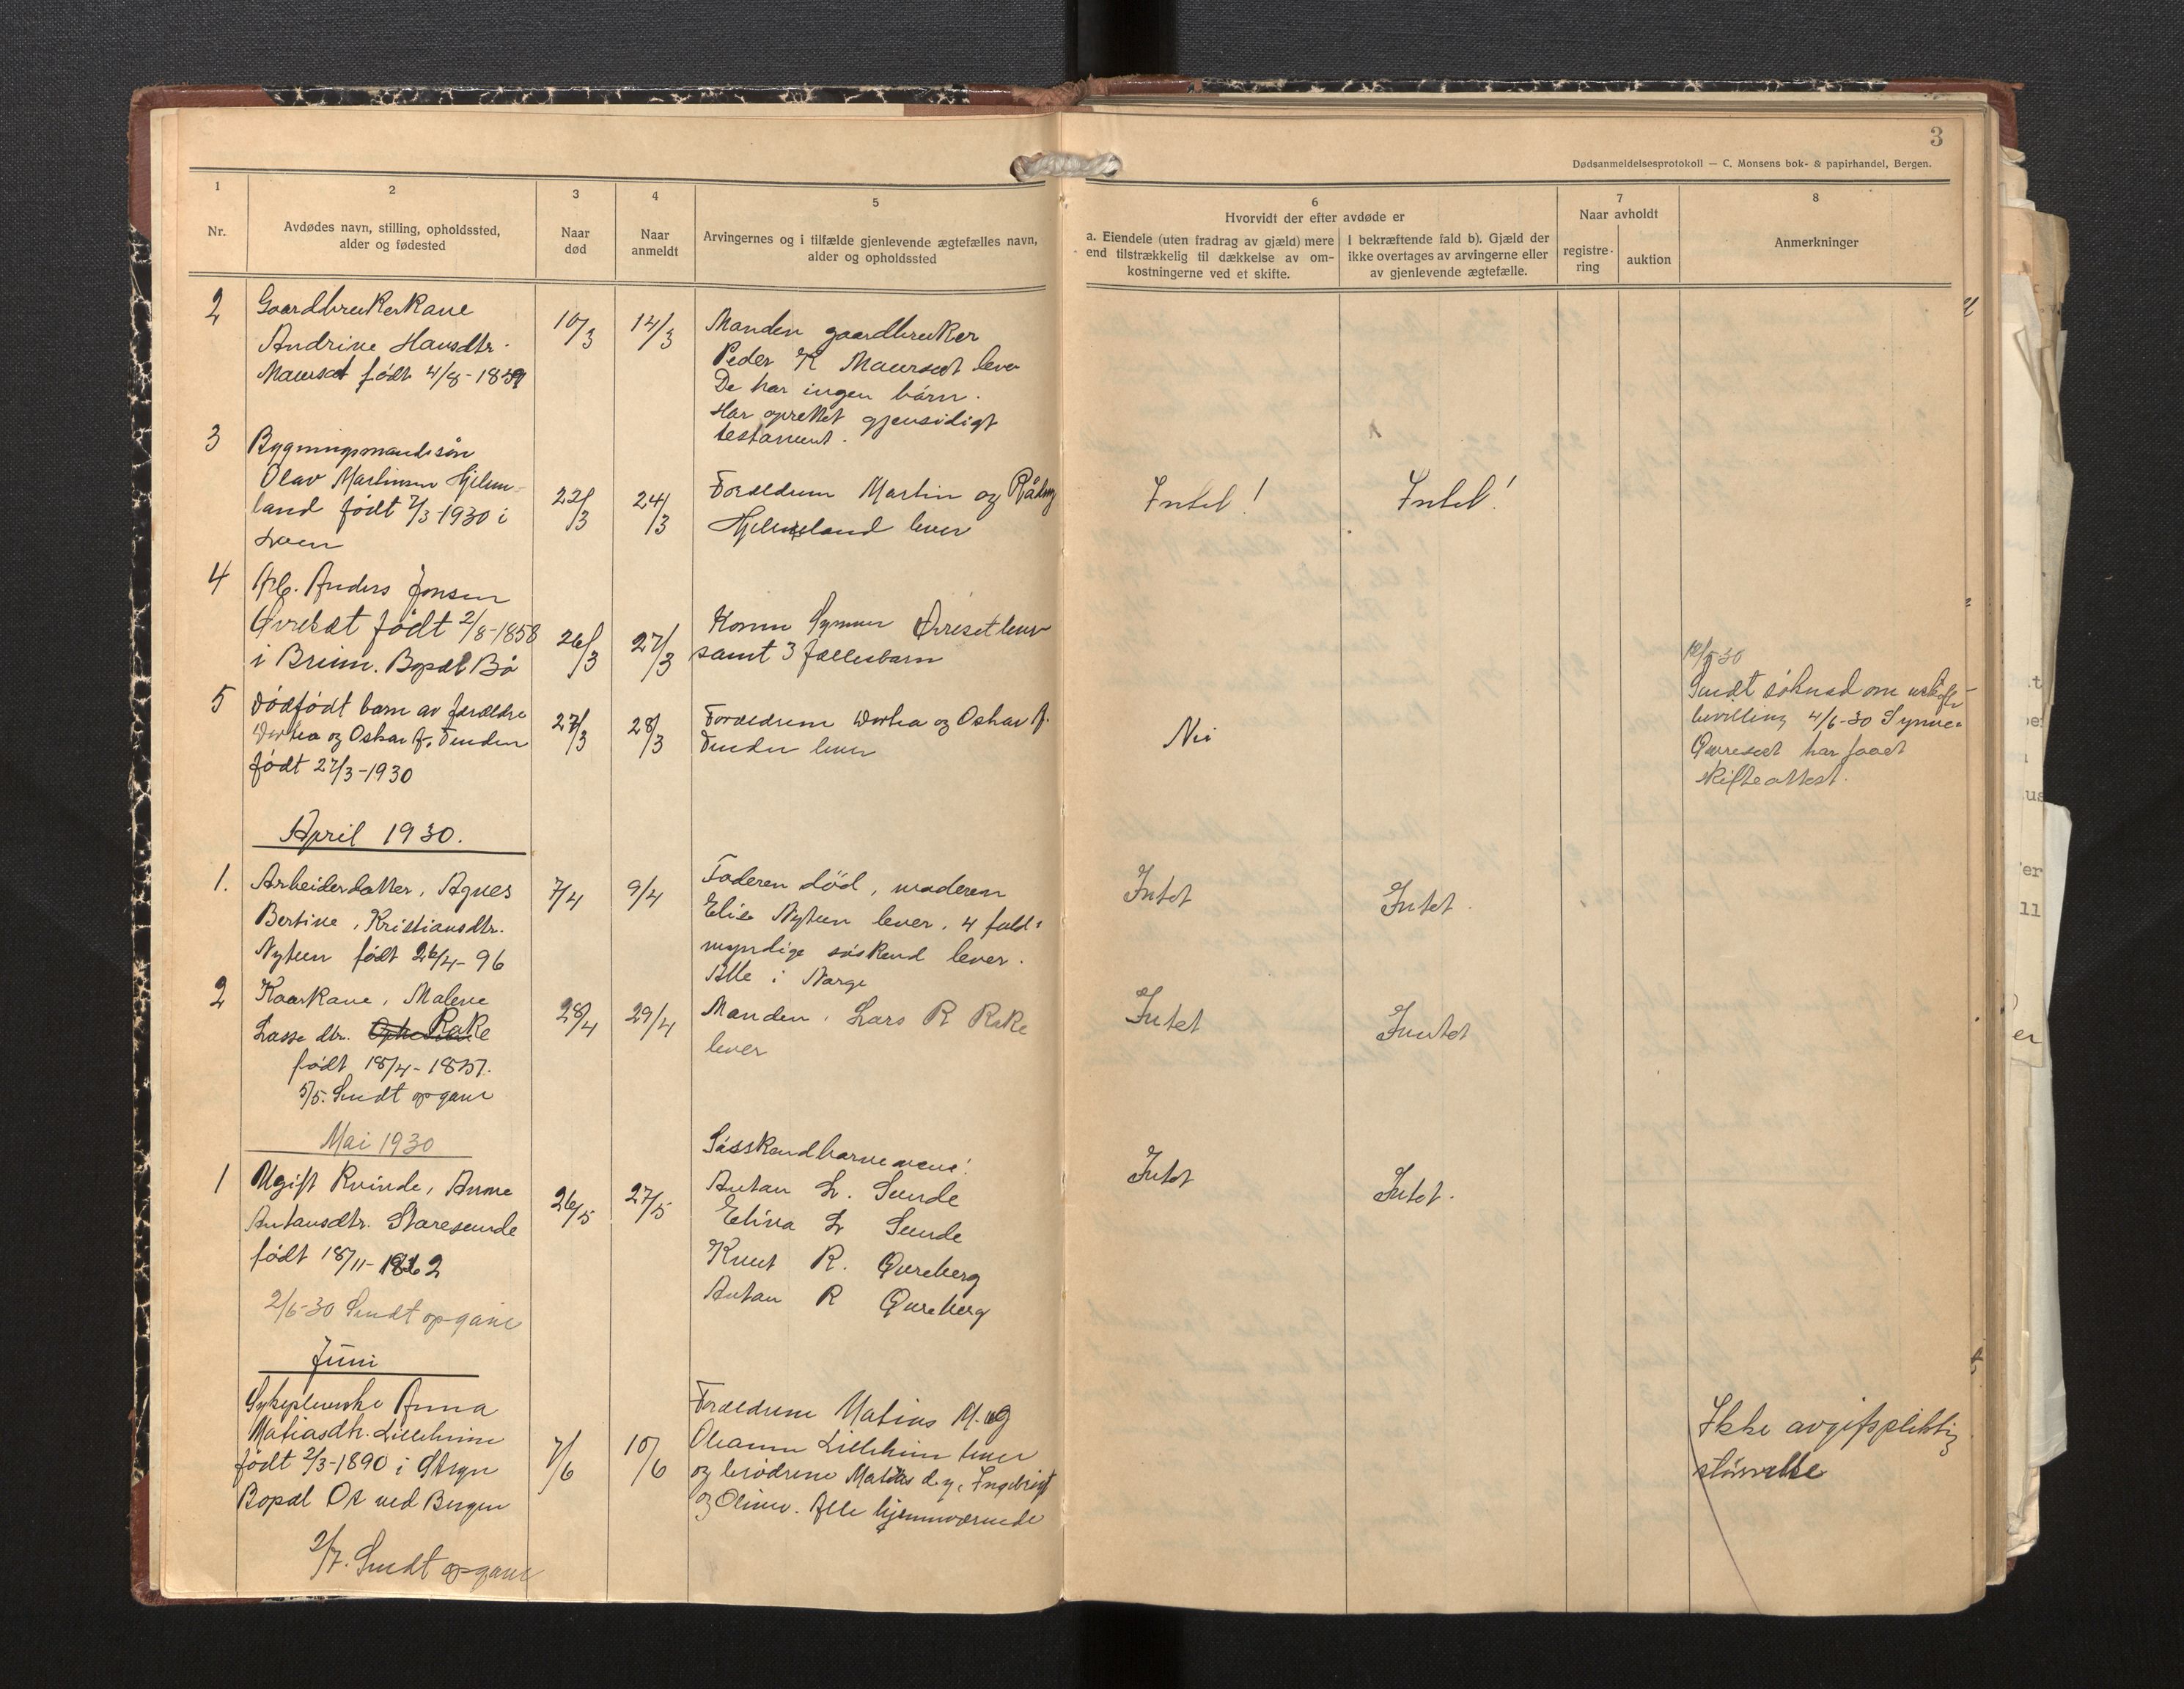 3
Dødsanmeldelsesprotokoll — C. Monsens bok- & papirhandel, Bergen.
1
Nr.
2
Avdødes navn, stilling, opholdssted,
alder og fødested
3
Naar
død
4
Naar
anmeldt
5
Arvingernes og i tilfælde gjenlevende ægtefælles navn,
alder og opholdssted
6
Hvorvidt der efter avdøde er
a. Eiendele (uten fradrag av gjæld) mere
end tilstrækkelig til dækkelse av om-
kostningerne ved et skifte.
I bekræftende fald b). Gjæld der
ikke overtages av arvingerne eller
av gjenlevende ægtefælle.
7
Naar avholdt
registre-
ring
auktion
8
Anmerkninger
2
Gaardbrukerkane
Andrine Hansdtr.
Maurset født 4/8-1849
10/3
14/3
Manden gaardbruker
Peder K Maurset lever
De har ingen bárn.
Har oprettet gjensidigt
testament.
3
Bygningsmandssøn
Olav Martinsen Hjelm-
land født 7/3-1930 i
Loen
22/3
24/3
Forældrene Martin og
Hjelmeland lever
Intet!
Intet!
4
Arb. Anders Jonsen
Øvreset født 2/8-1858
i Breim. Bopæl Bö
26/3
27/3
Konen Synnev Øvreset lever
samt 3 fællesbarn
5
Dödfödt barn av forældre
Dortea og Oskar A. Tenden
födt 27/3-1930
27/3
28/3
Forældrene Dortea og Oskar A.
Tenden lever
Nei
12/5 30
Sendt söknad om uskifte-
bevilling 4/6-30 Synneve
Øvreset har faaet
skifteattest.
April 1930.
1.
Arbeiderdatter, Agnes
Bertine, Kristiansdtr.
Nyteen født 26/4-96
7/4
9/4
Faderen död, moderen
Elise Nyteen lever. 4 fuld-
myndige söskend lever.
Alle i Norge
Intet
Intet.
2
Kaarkane, Malene
Lasse dtr. Rake
født 18/4-1837.
5/5. Sendt opgave
28/4
29/4
Manden, Lars R Rake
lever
Intet
Inntet
Mai 1930
1
Ugift Kvinde, Anne
Antonsdtr. Staresunde
født 18/11-1862
2/6-30 Sendt opgave
26/5
27/5
Søsskendbarnene:
Anton L. Sunde
Elina L Sunde
Knut R. Øvreberg
Anton R Øvreberg
Intet
Intet.
Juni
Sykepleierske Anna
Matiasdtr. Lilleheim
födt 2/3-1890 i Stryn
Bopæl Os ved Bergen
2/7. Sendt opgave
7/6
10/6
Forældrene Matias M. og
Oleanna Lilleheim lever
og brödrene Matias d.y, Ingebrigt
og Oliver. Alle hjemmværende
Ikke avgifspliktig
størrelse